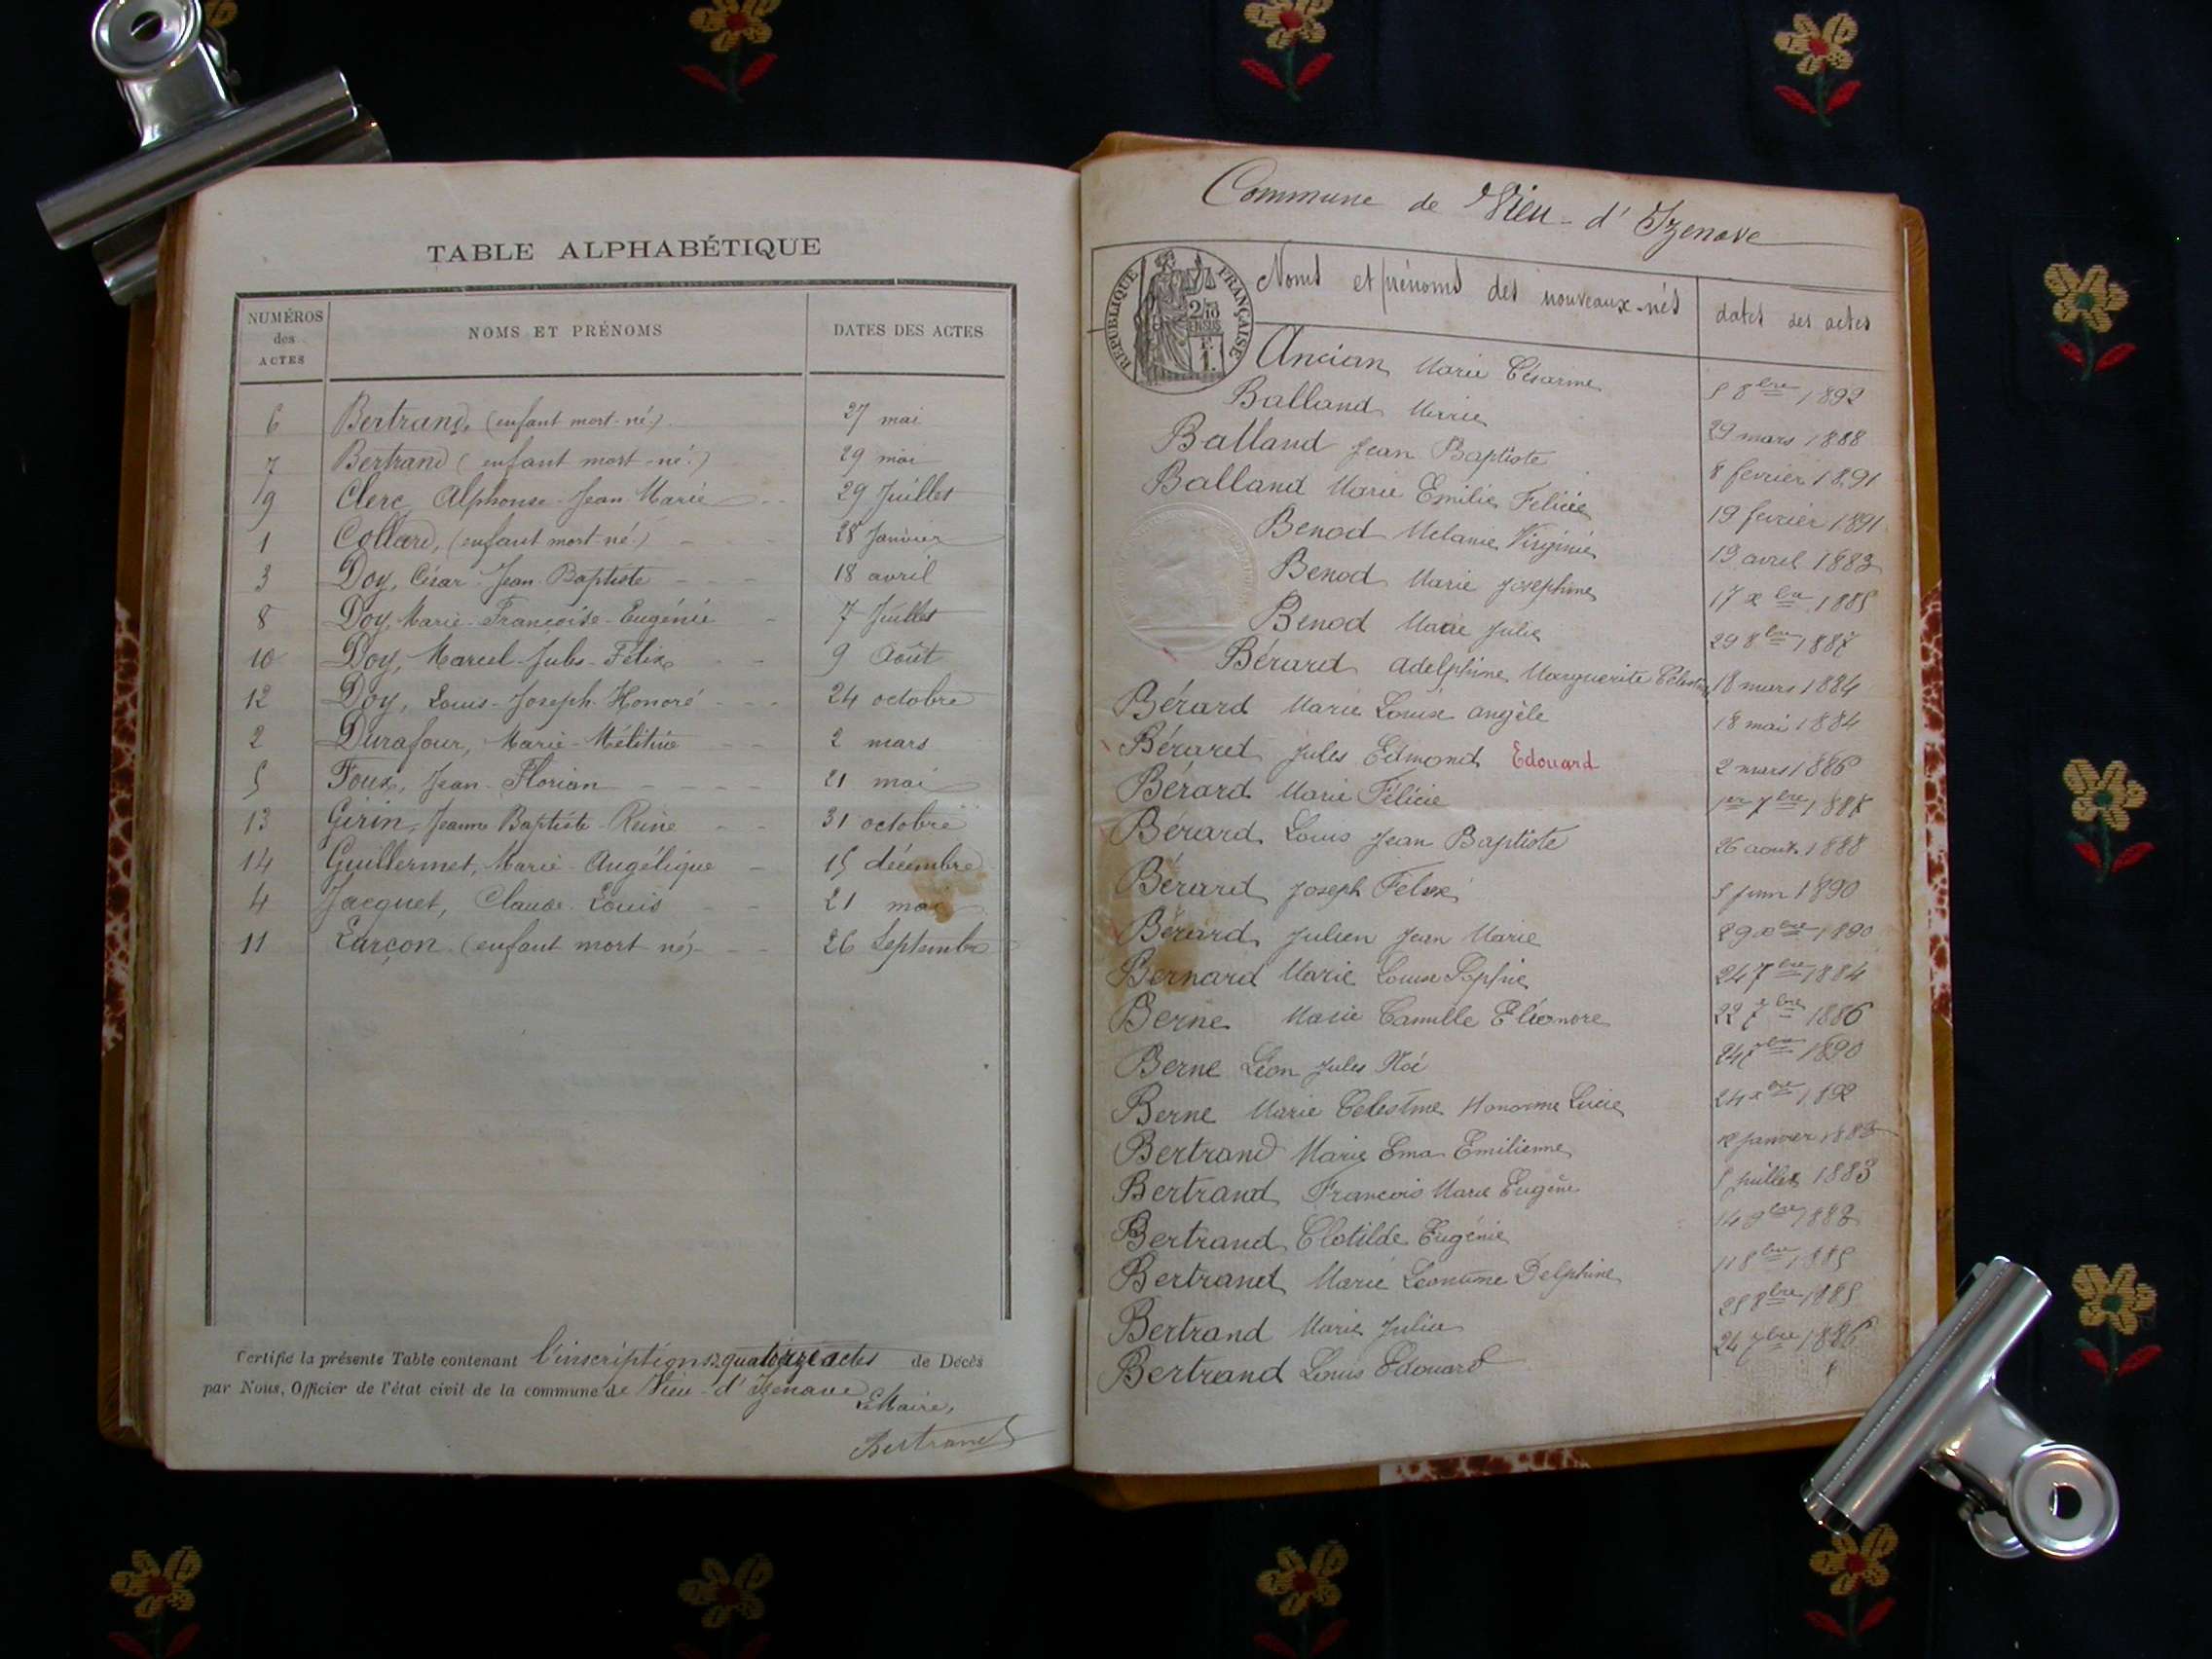 TABLE ALPHABÉTIQUE
NUMÉROS des ACTES
NOMS ET PRÉNOMS
DATES DES ACTES
6 Bertrand, (enfant mort-né) 27 mai
7 Bertrand (enfant mort-né) 29 mai
9 Clerc, Alphonse-Jean-Marie 29 Juillet
1 Collard, (enfant mort-né) 28 Janvier
3 Doy, César-Jean-Baptiste 18 avril
8 Doy, Marie-Françoise-Eugénie 7 Juillet
10 Doy, Marcel-Jules-Félix 9 Août
12 Doy, Louis-Joseph-Honoré 24 octobre
2 Durafour, Marie-Mélitine 2 mars
5 Foux, Jean-Florian 21 mai
13 Girin, Jeanne Baptiste-Reine 31 octobre
14 Guillermet, Marie-Angélique 15 décembre
4 Jacquet, Claude-Louis 21 mai
11 Larçon (enfant mort-né) 26 Septembre
Certifié la présente Table contenant l'inscription quatorze actes de Décès
par Nous, Officier de l'état civil de la commune de Vieu-d'Izenave
Le Maire,
Bertrand
Commune de Vieu-d'Izenave
RÉPUBLIQUE FRANÇAISE
2/10 EN SUS
1 F.
Noms et prénoms des nouveaux-nés dates des actes
Ancian Marie Césarine 5 8bre 1892
Balland Marie 29 mars 1888
Balland Jean Baptiste 8 fevrier 1891
Balland Marie Emilie Felicie 19 fevrier 1891
Benod Melanie Virginie 13 avril 1883
Benod Marie Josephine 17 xbre 1885
Benod Marie Julie 29 8bre 1887
Bérard Adelphine Marguerite Célestine 18 mars 1884
Bérard Marie Louise Angèle 18 mai 1884
Bérard Jules Edmond Edouard 2 mars 1886
Bérard Marie Félicie 1er 7bre 1887
Bérard Louis Jean Baptiste 26 aout 1888
Bérard Joseph Felix 5 juin 1890
Bérard Julien Jean Marie 29 xbre 1890
Bernard Marie Louise Sophie 24 7bre 1884
Berne Marie Camille Eléonore 22 7bre 1886
Berne Léon Jules Noé 24 1890
Berne Marie Celestine Honorine Lucie 24 xbre 1892
Bertrand Marie Ema Emilienne 12 janvier 1883
Bertrand Francois Marie Eugène 5 juillet 1883
Bertrand Clotilde Eugénie 14 9bre 1883
Bertrand Marie Leontine Delphine 11 8bre 1885
Bertrand Marie Julie 25 8bre 1885
Bertrand Louis Edouard 24 7bre 1886